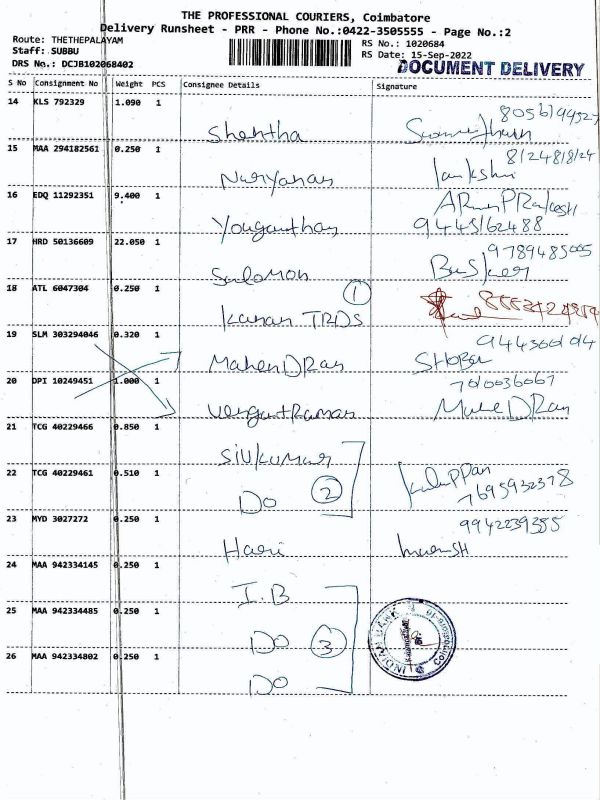 THE PROFESSIONAL COURIERS, Coimbatore
Delivery Runsheet - PRR - Phone No.:0422-3505555 - Page No.:2
Route: THETHEPALAYAM
RS No.: 1020684
Staff: SUBBU
RS Date: 15-Sep-2022
DRS No.: DCJB102068402
DOCUMENT DELIVERY
S No Consignment No Weight PCS Consignee Details Signature
14 KLS 792329 1.090 1
Shantha
15 MAA 294182561 0.250 1
8124818124
Nuryanan
16 EDQ 11292351 9.400 1
Younganthan 9445162488
17 HRD 50136609 22.050 1
9789485005
Salomon
18 ATL 6047304 0.250 1
1
Kanan TRDS
19 SLM 303294046 0.320 1
MahenDRan SHOBA
20 DPI 10249451 1.000 1
7010036067
VengantRaman MaheDRan
21 TCG 40229466 0.850 1
SIVKUMAR
22 TCG 40229461 0.510 1
KaluPPan
Do 2 7695932378
23 MYD 3027272 0.250 1
9942239355
Hari
24 MAA 942334145 0.250 1
I.B
25 MAA 942334485 0.250 1
Do 3
26 MAA 942334802 0.250 1
Do
INDIAN BANK
Coimbatore